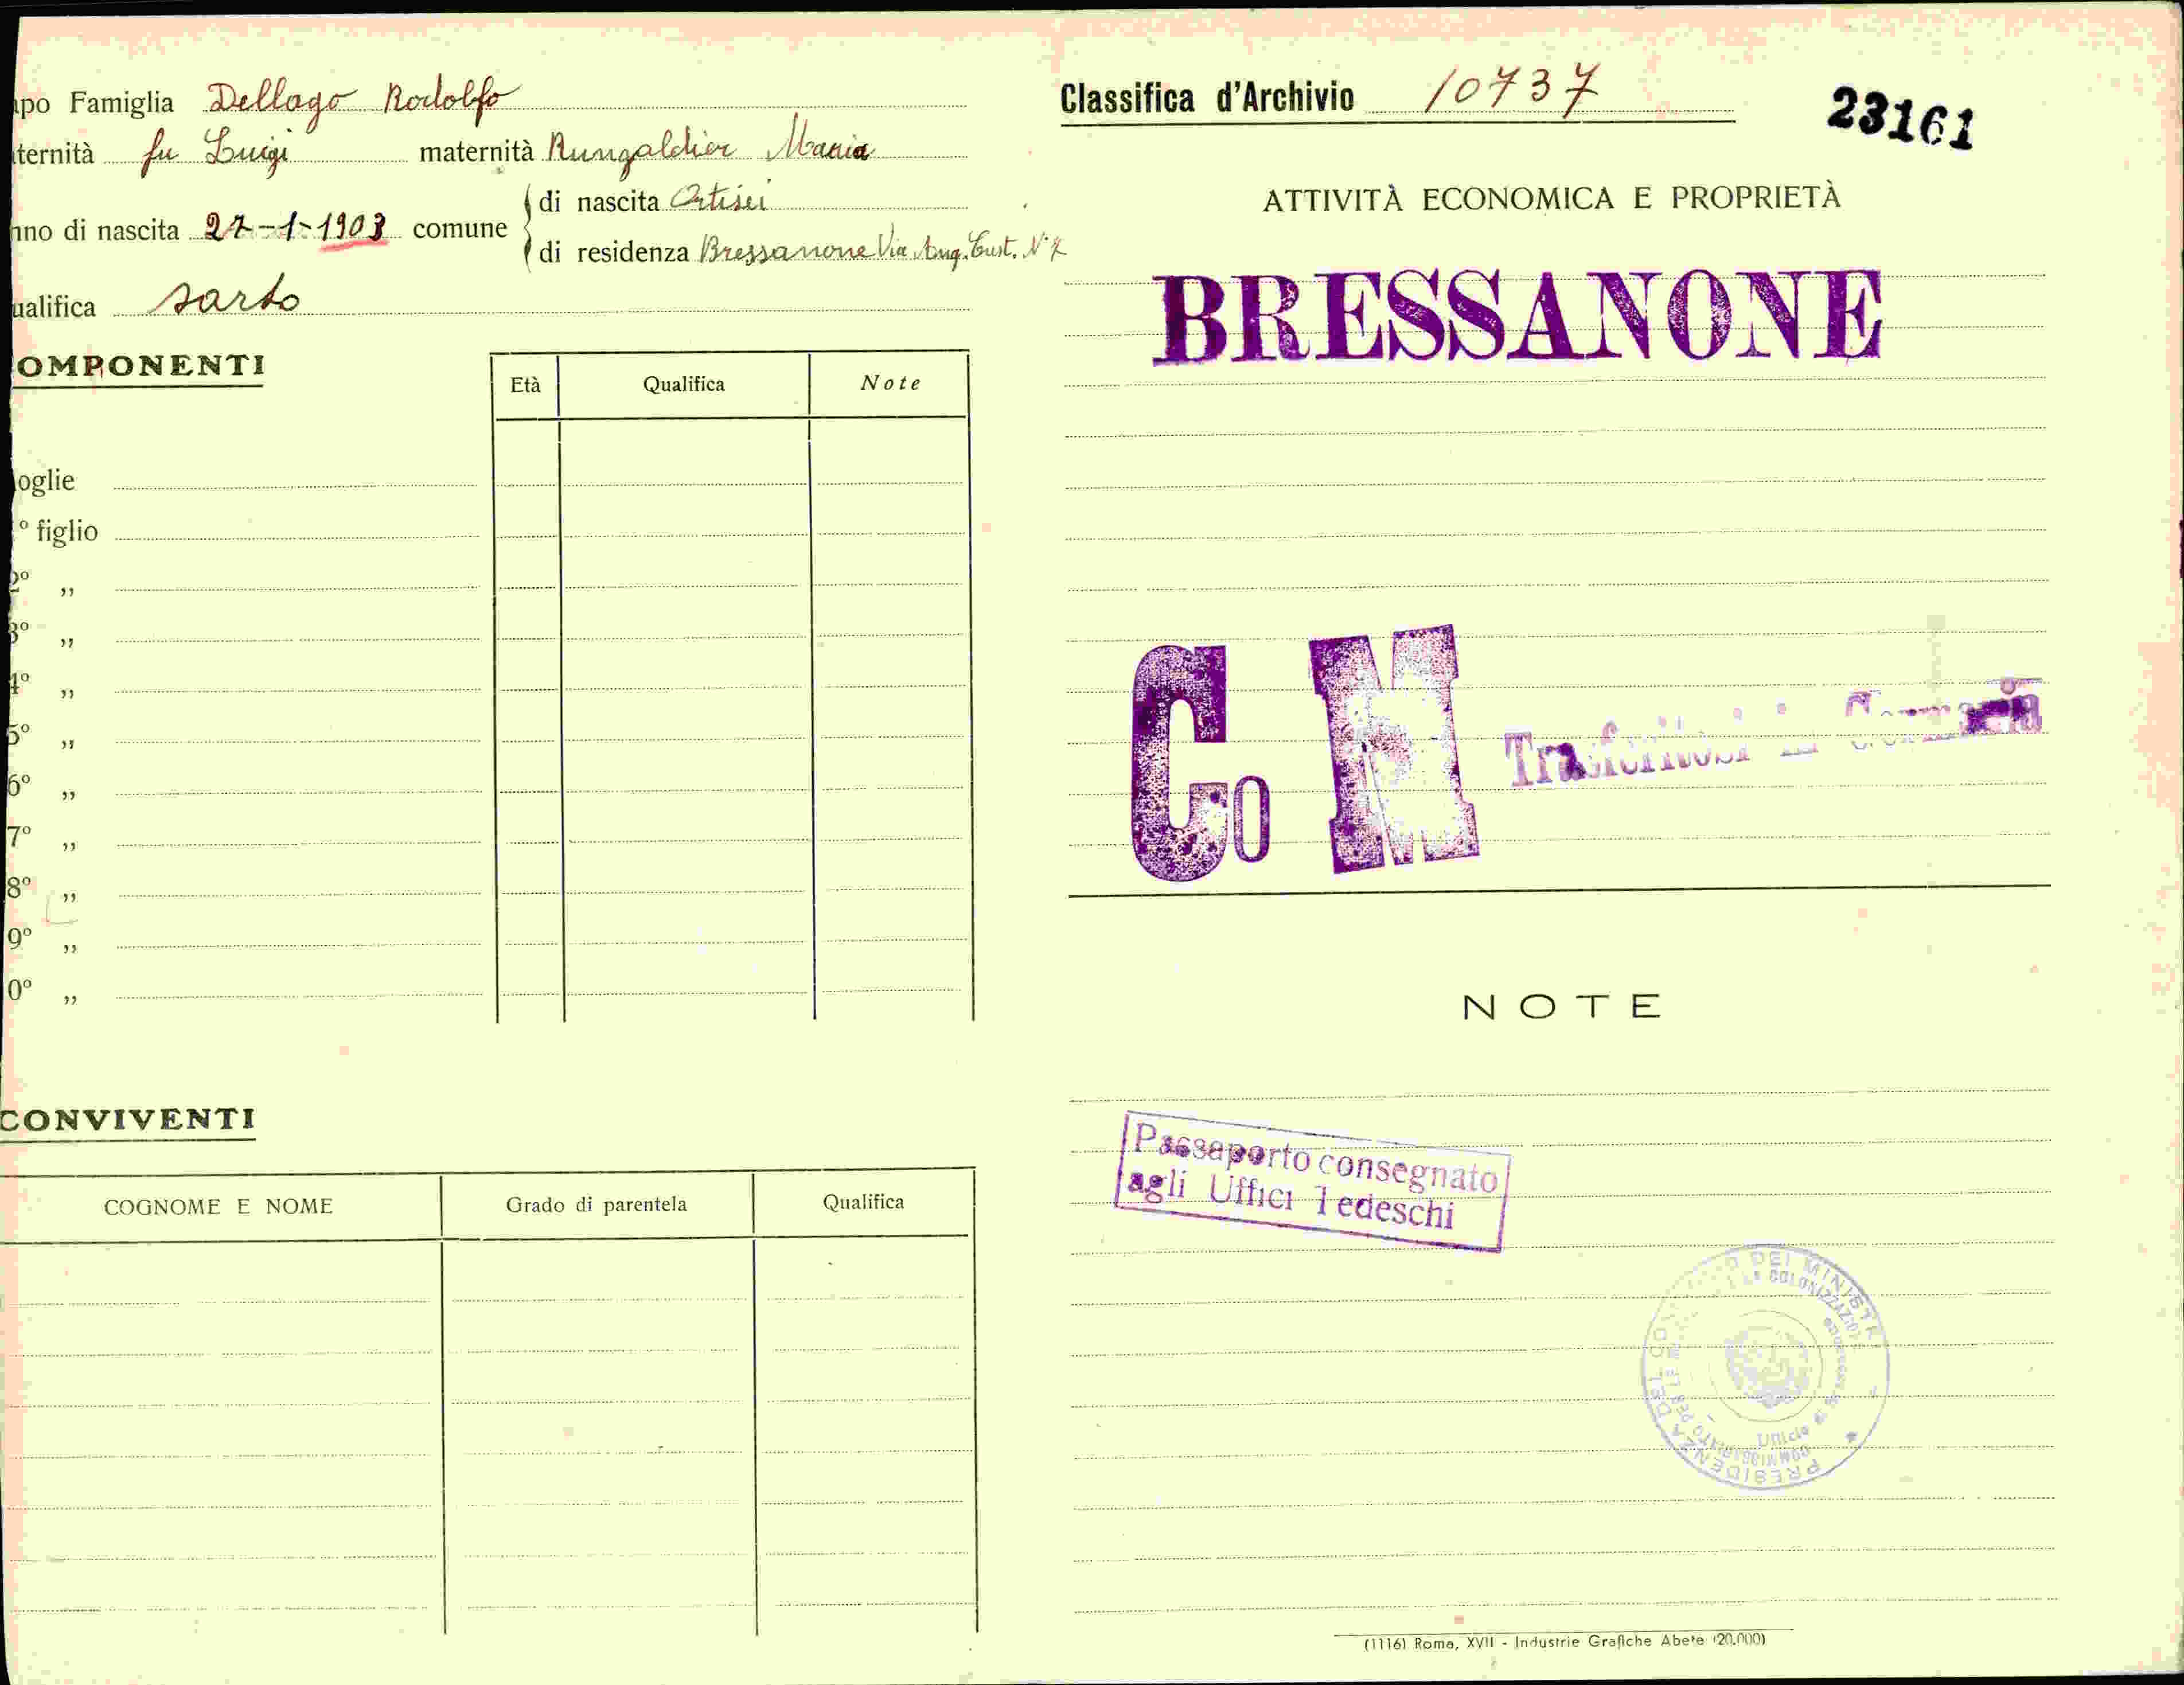 apo Famiglia Dellago Rodolfo
ternità fu Luigi maternità Rungaldier Maria
nno di nascita 27-1-1903 comune
di nascita Ortisei
di residenza Bressanone Via Aug. N° 7
ualifica sarto
OMPONENTI
Età Qualifica Note
oglie
° figlio
2° „
3° „
4° „
5° „
6° „
7° „
8° „
9° „
0° „
CONVIVENTI
COGNOME E NOME Grado di parentela Qualifica
Classifica d'Archivio 10737
23161
ATTIVITÀ ECONOMICA E PROPRIETÀ
BRESSANONE
Co M
Trasferitosi in Germania
NOTE
Passaporto consegnato
agli Uffici Tedeschi
PRESIDENZA DEL CONSIGLIO DEI MINISTRI
COMMISSARIATO PER LE MIGRAZIONI E LA COLONIZZAZIONE
Ufficio di
(1116) Roma, XVII - Industrie Grafiche Abete (20.000)